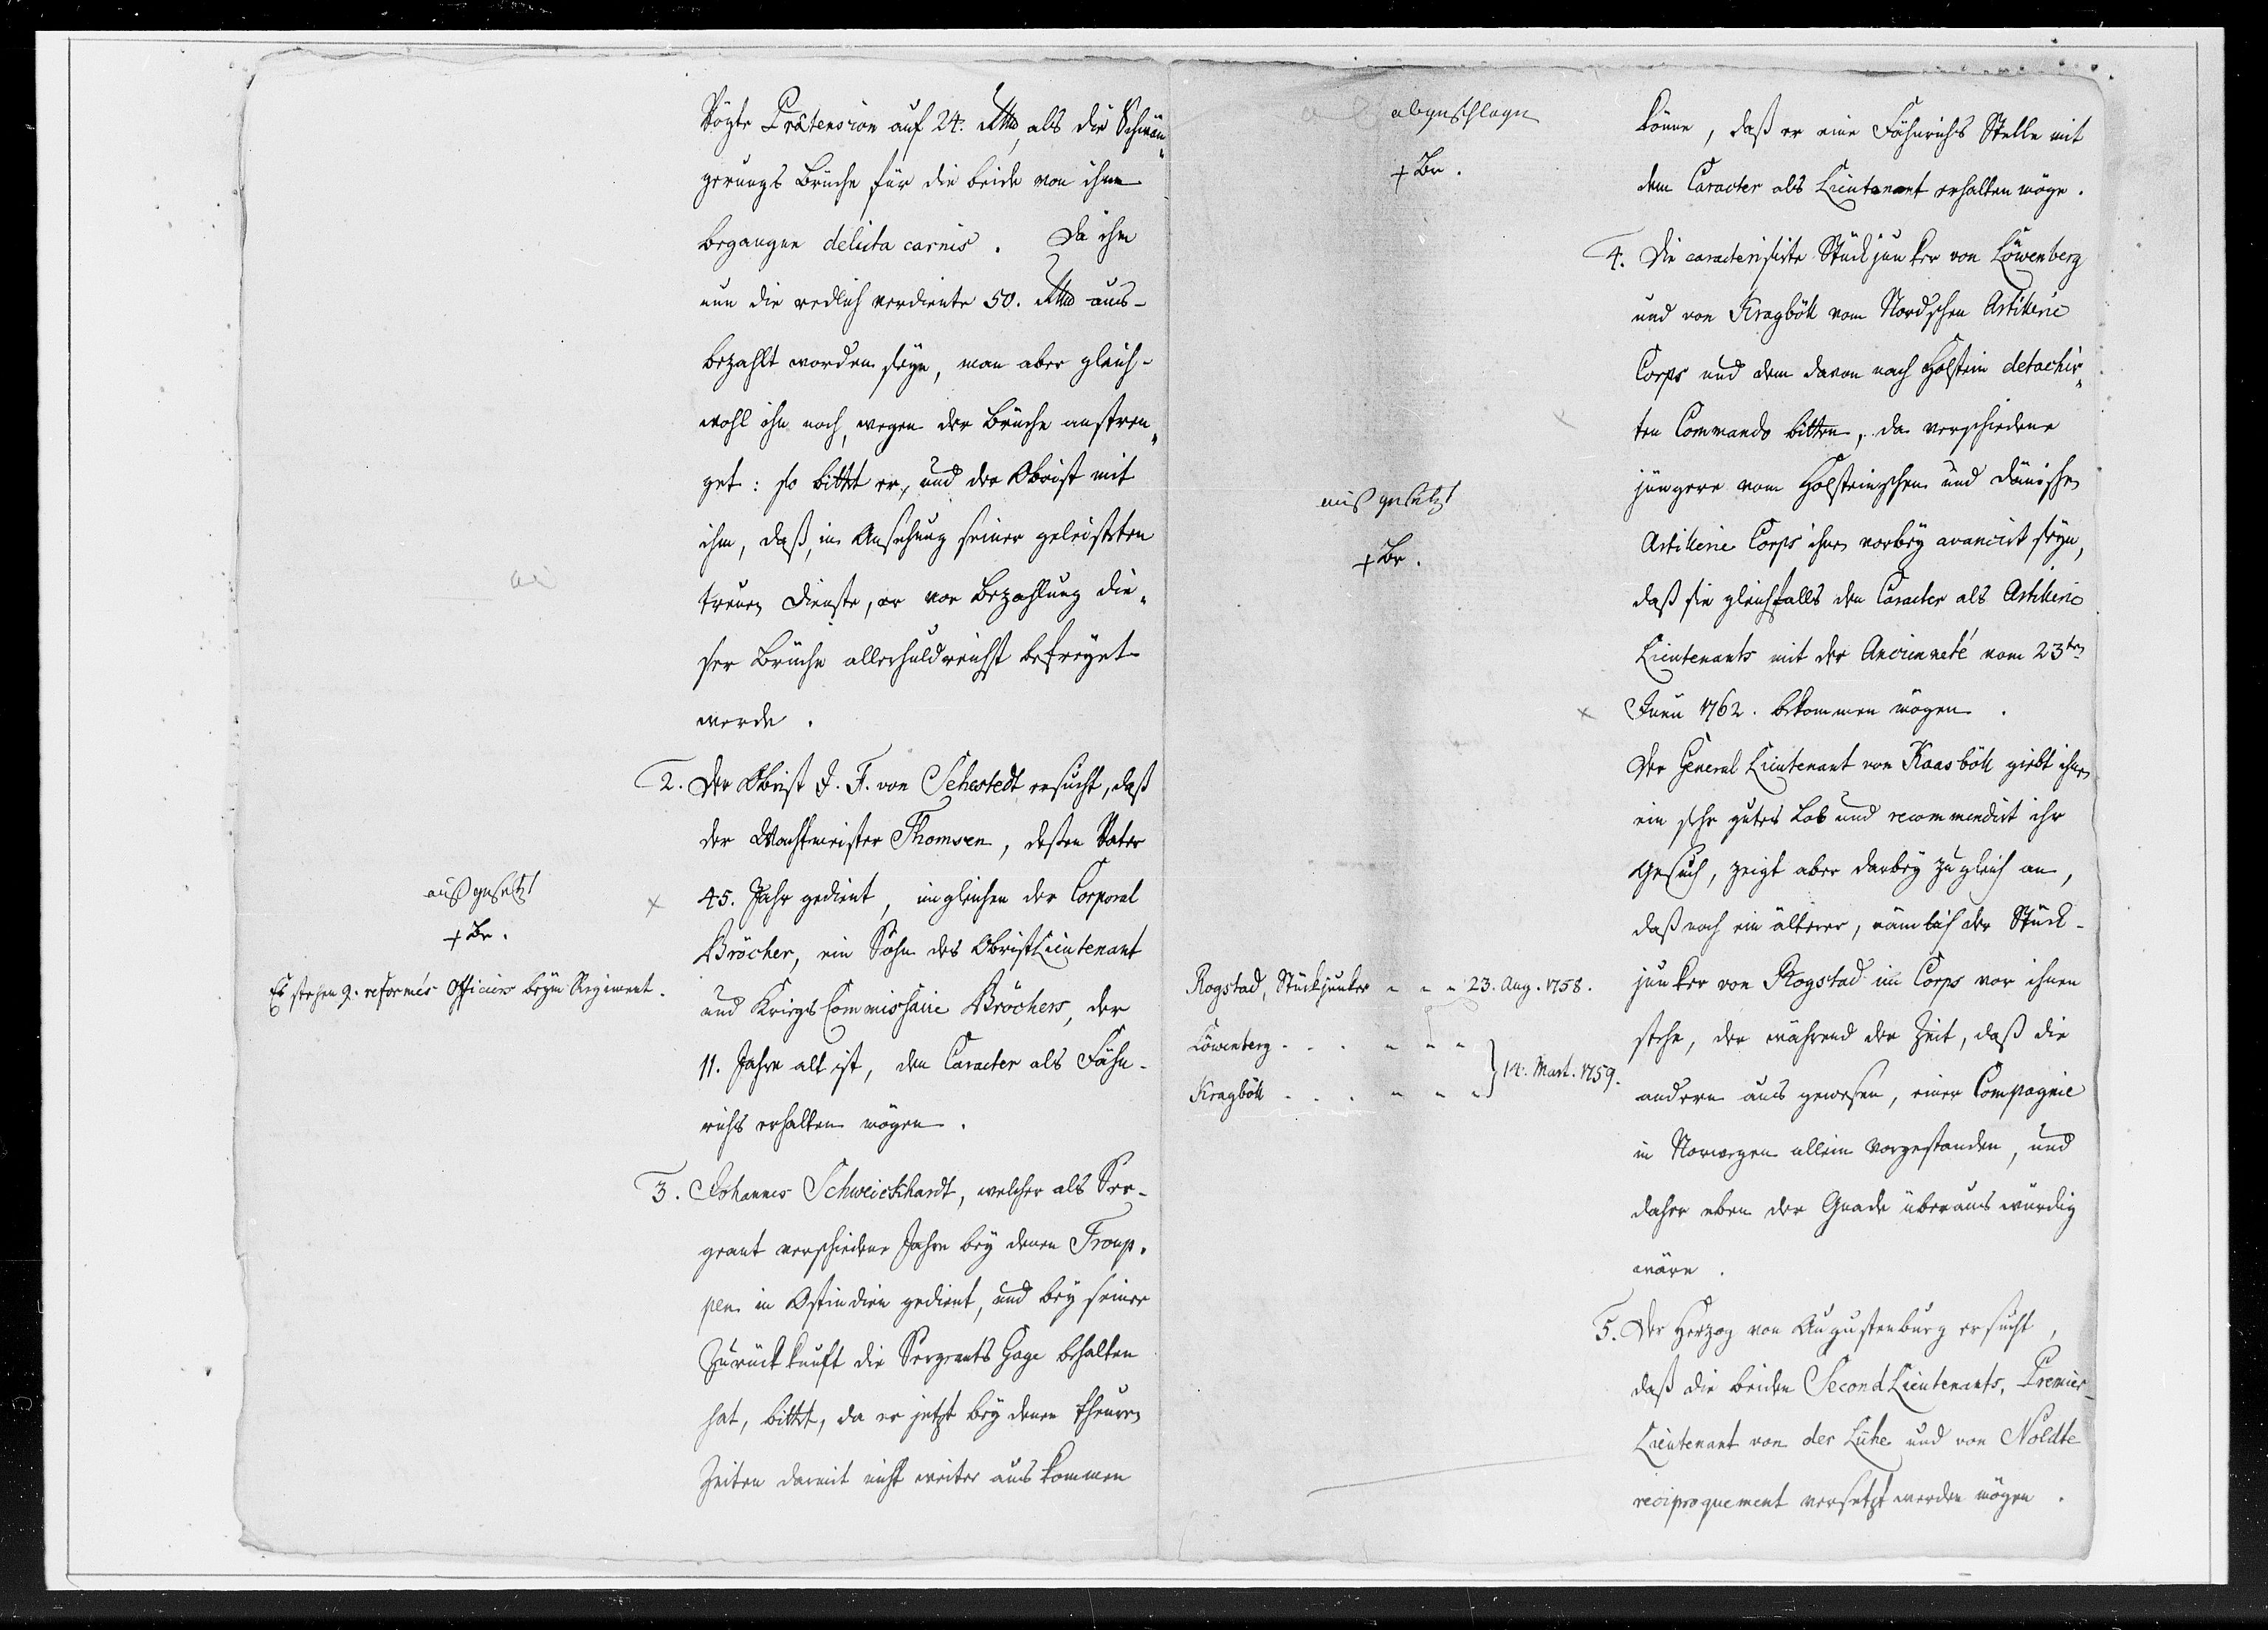 Vögte Prætension auf 24. Rthlr, als die Schwän„
gerungs Brüche für die beide von ihm
begangen delicta carnis. Da ihm
nun die redlich verdiente 50. Rthlr aus-
bezahlt worden seyn, man aber gleich-
wohl ihn noch, wegen der Brüche anstren„
get: so bittet er, und der Obrist mit
ihm, daß, in Ansehung seiner geleisteten
treuen Dienste, er von Bezahlung die„
ser Brüche allerhuldreichst befreyet
werde.
2. Der Obrist J. F. von Sehestedt ersucht, daß
der Wachtmeister Thomsen, deßen Vater
45. Jahr gedient, imgleichen der Corporal
Bröcher, ein Sohn des ObristLieutenant
und Kriegs Commissaire Bröchers, der
11. Jahre alt ist, den Caracter als Fähn-
richs erhalten mögen.
außgesetzt
+ Br.
Es stehen 2. reformés Officiers beym Regiment.
3. Johannes Schweickhardt, welcher als Ser-
geant verschiedene Jahre bey denen Troup-
pen in Ostindien gedient, und bey seiner
Zurückkunft die Sergeants Gage behalten
hat, bittet, da er jetzt bey denen theuren
Zeiten damit nicht weiter auskommen
abgeschlagen
+ Br.
könne, daß er eine Fähnrichs Stelle mit
dem Caracter als Lieutenant erhalten möge.
4. Die caracterisirte Stückjunker von Löwenberg
und von Kragböll vom Nordschen Artillerie
Corps und dem davon nach Holstein detachir„
ten Commando bitten, da verschiedene
jüngere vom Holsteinschen und Dänischen
Artillerie Corps ihnen vorbey avancirt seyn,
daß sie gleichfalls den Caracter als Artillerie
Lieutenants mit der Ancienneté vom 23ten
Junii 1762. bekommen mögen.
außgesetzt
+ Br.
Der General Lieutenant von Kaasböll giebt ihnen
ein sehr gutes Lob und recommendirt ihr
Gesuch, zeigt aber darbey zugleich an,
daß noch ein älterer, nämlich der Stück-
junker von Rogstad im Corps vor ihnen
stehe, der während der Zeit, daß die
andern aus gewesen, einer Compagnie
in Norwegen allein vorgestanden, und
daher eben der Gnade überaus würdig
wäre.
Rogstad, Stückjunker - - - 23. Aug. 1758.
Löwenberg - - - - - -
} 14. Mart. 1759.
Kragböll - - - - - -
5. Der Herzog von Augustenburg ersucht,
daß die beiden SecondLieutenants, Premier-
Lieutenant von der Lühe und von Nöldte
reciproquement versetzt werden mögen.